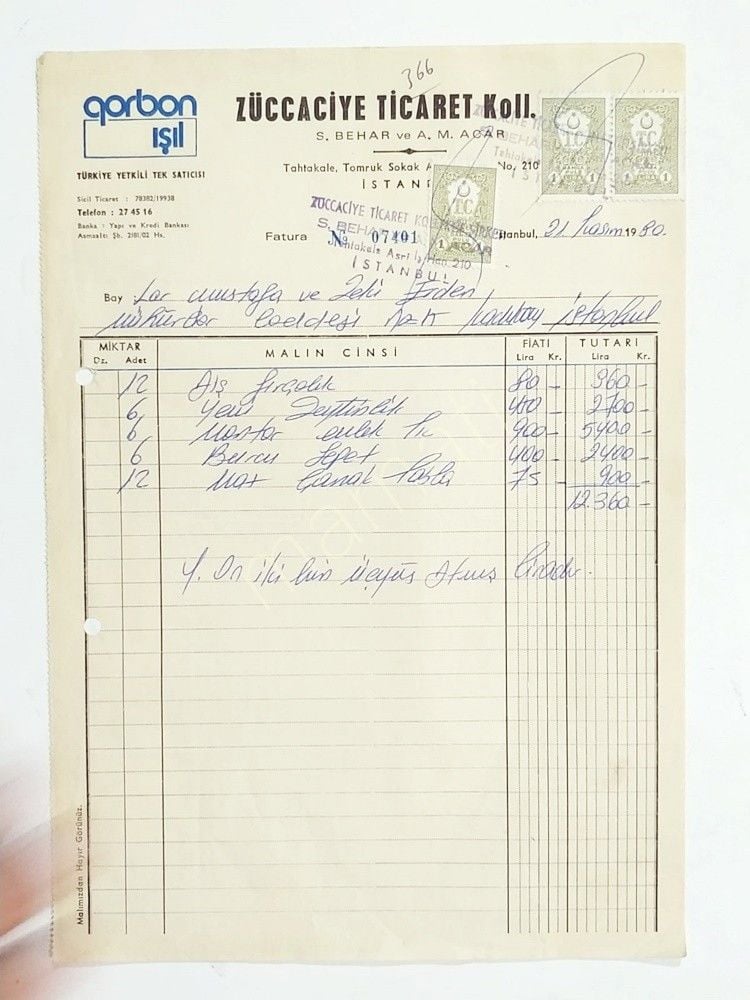 366
qorbon
ışıl
TÜRKİYE YETKİLİ TEK SATICISI
Sicil Ticaret : 78382/19938
Telefon : 27 45 16
Banka : Yapı ve Kredi Bankası
Asmaaltı Şb. 2181/02 Hs.
ZÜCCACİYE TİCARET Koll.
S. BEHAR ve A. M. ACAR
Tahtakale, Tomruk Sokak No. 210
İSTAN
T.C.
1 1
T.C.
1 1
T.C.
1
ZÜCCACİYE TİCARET
S. BEHAR ACAR
Tahtakale Asri Han 210
İSTANBUL
Fatura № 07401
İstanbul, 21 Kasım 1980.
Bay Mustafa ve Zeki Erden
Caddesi Kadıköy İstanbul
MİKTAR MALIN CİNSİ FİATI TUTARI
Dz. Adet Lira Kr. Lira Kr.
12 Diş fırçalık 80 - 960 -
6 Yeni 450 - 2700 -
6 900 - 5400 -
6 Burcu Sepet 400 - 2400 -
12 Çanak 75 - 900 -
12.360 -
Y. On iki bin üçyüz altmış liradır.
Malımızdan Hayır Görünüz.